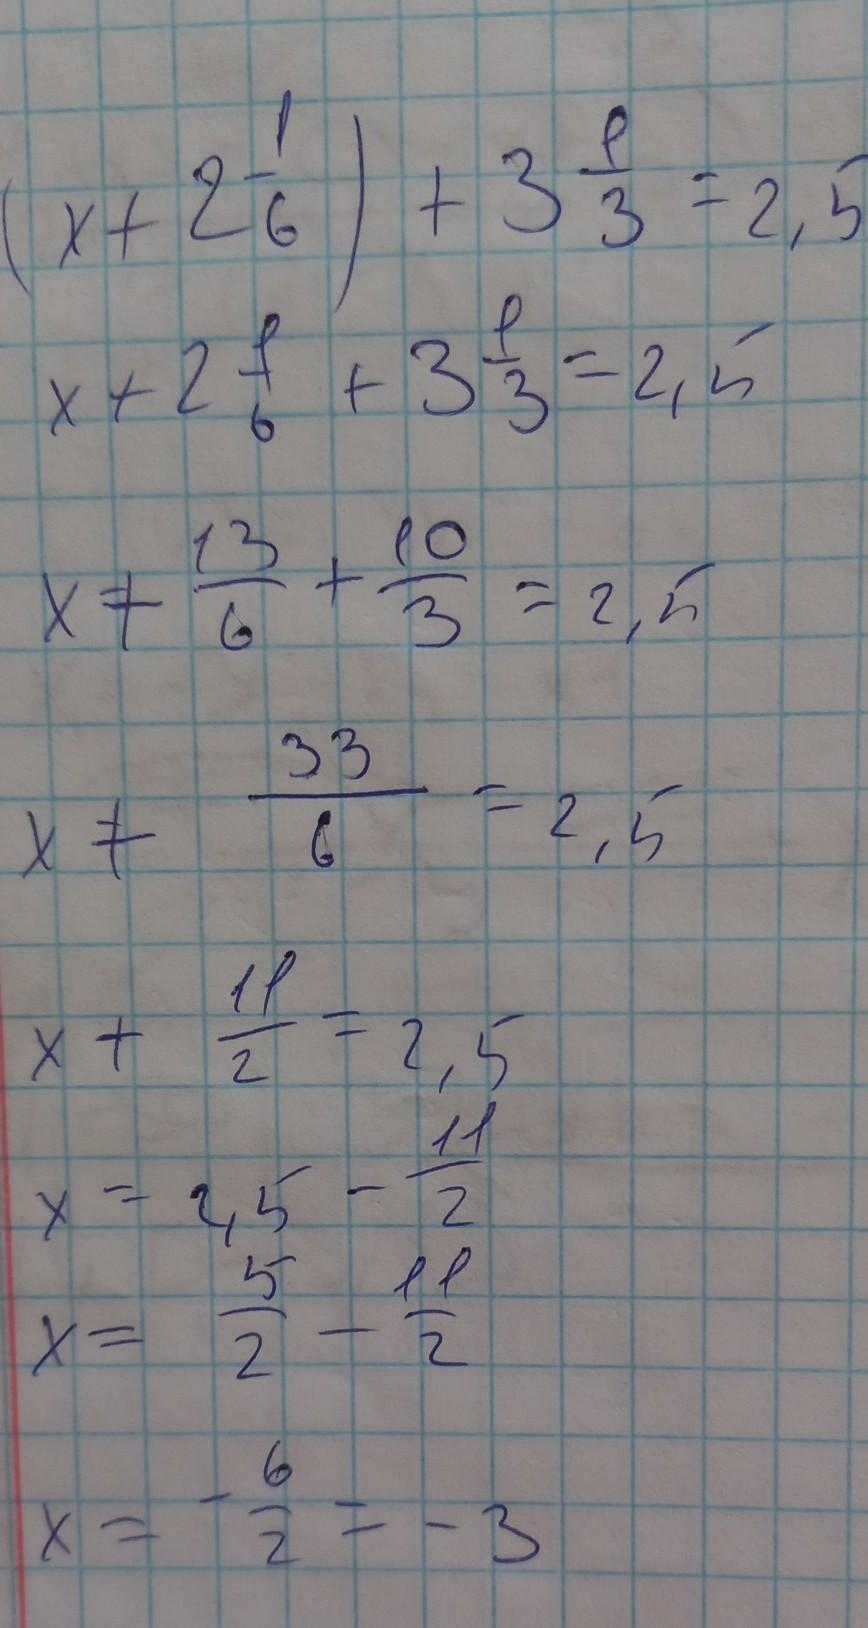 (x + 2 1/6) + 3 1/3 = 2,5
x + 2 1/6 + 3 1/3 = 2,5
x + 13/6 + 10/3 = 2,5
x + 33/6 = 2,5
x + 11/2 = 2,5
x = 2,5 - 11/2
x = 5/2 - 11/2
x = - 6/2 = - 3